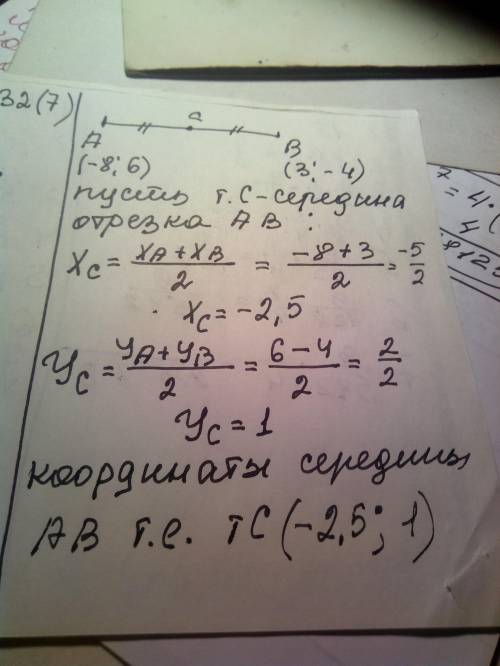 32(7)
A C B
(-8; 6) (3; -4)
пусть т. С-середина
отрезка АВ :
Xc = (XA + XB)/2 = (-8+3)/2 = -5/2
Xc = -2,5
Yc = (YA + YB)/2 = (6-4)/2 = 2/2
Yc = 1
координаты середины
АВ т.е. тС(-2,5; 1)